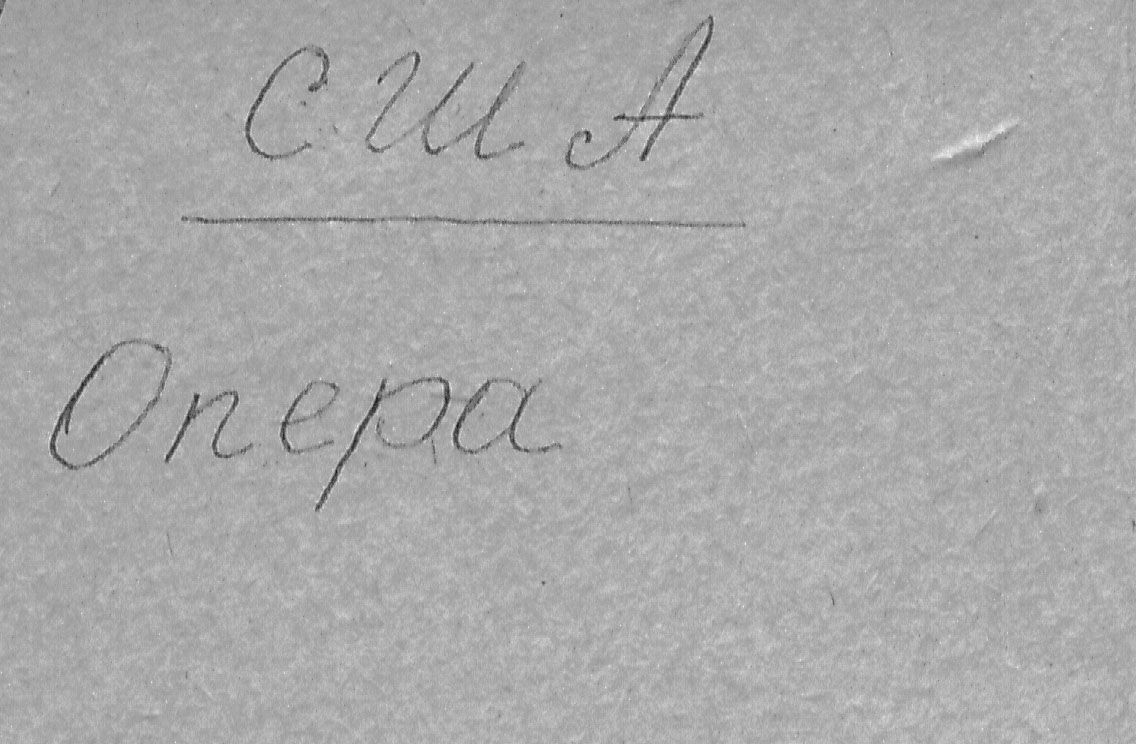 США
Опера